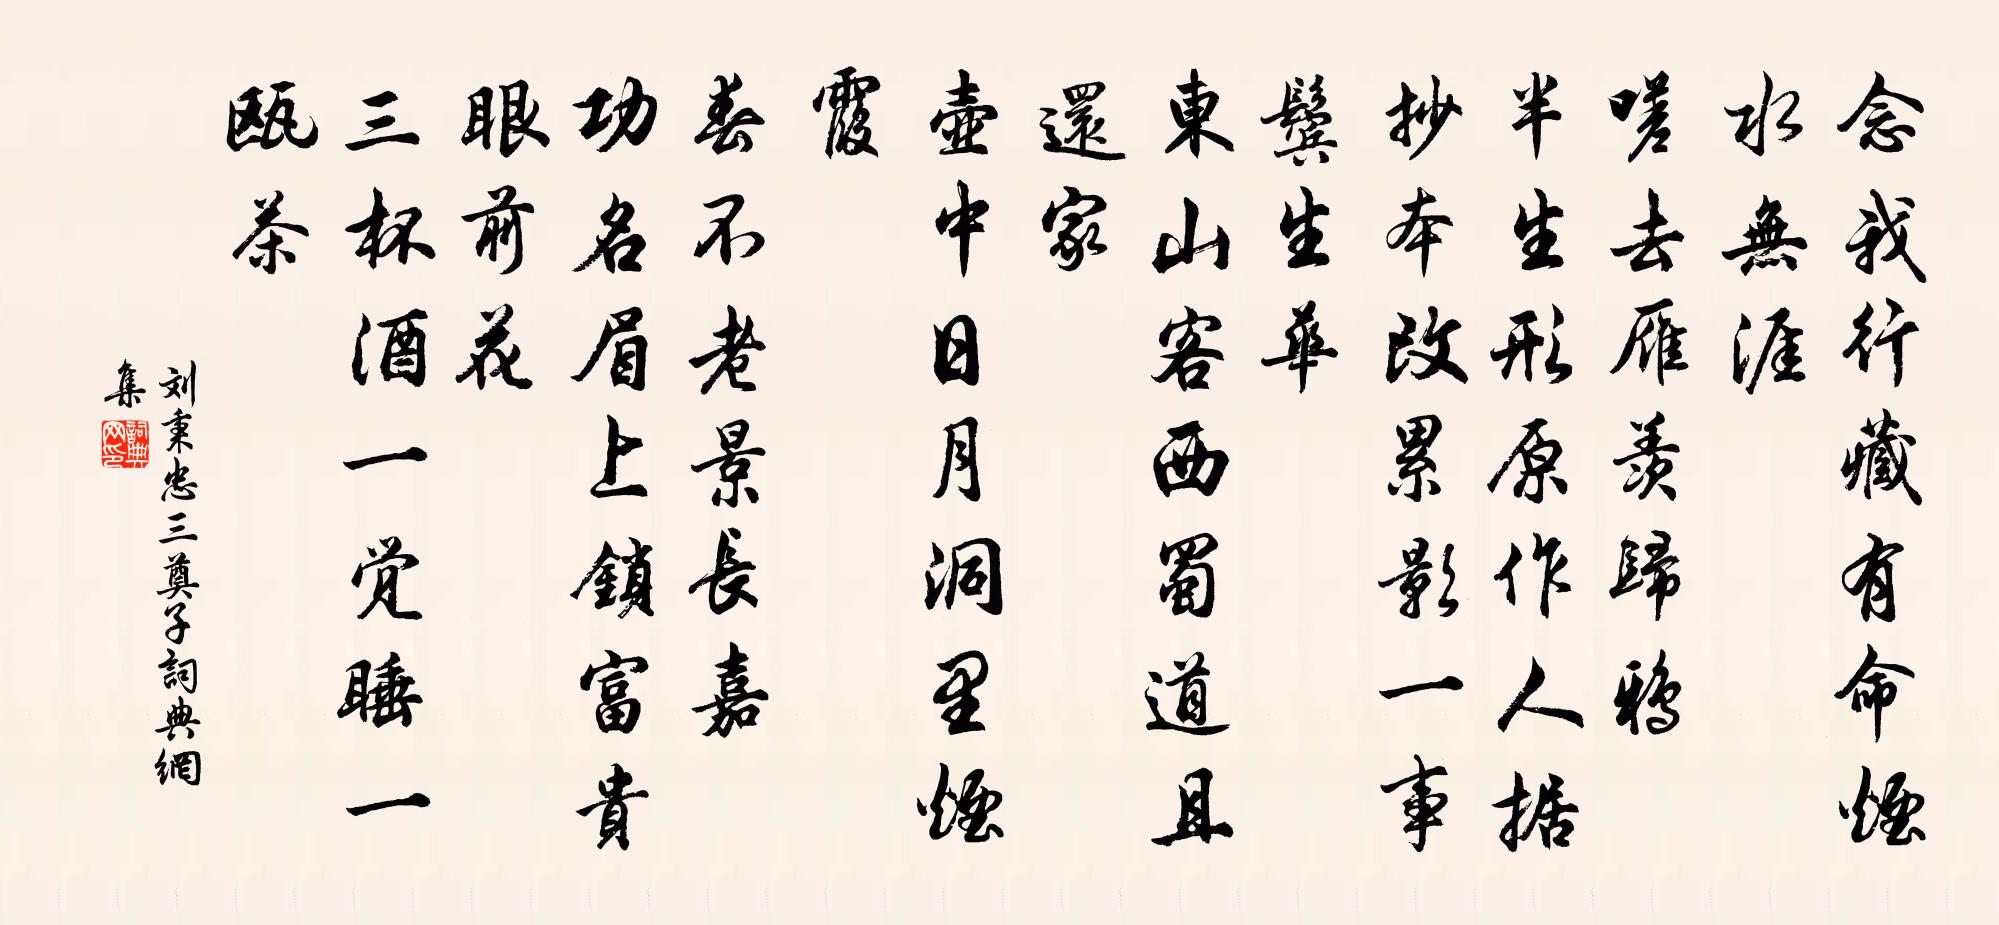 念我行藏有命煙
水無涯
嗟去雁羨歸鴉
半生形原作人据
抄本改累影一事
鬓生華
東山客西蜀道且
還家
壺中日月洞里煙
霞
春不老景長嘉
功名眉上鎖富貴
眼前花
三杯酒一觉睡一
瓯茶
刘秉忠三奠子詞典網
集
詞典网印